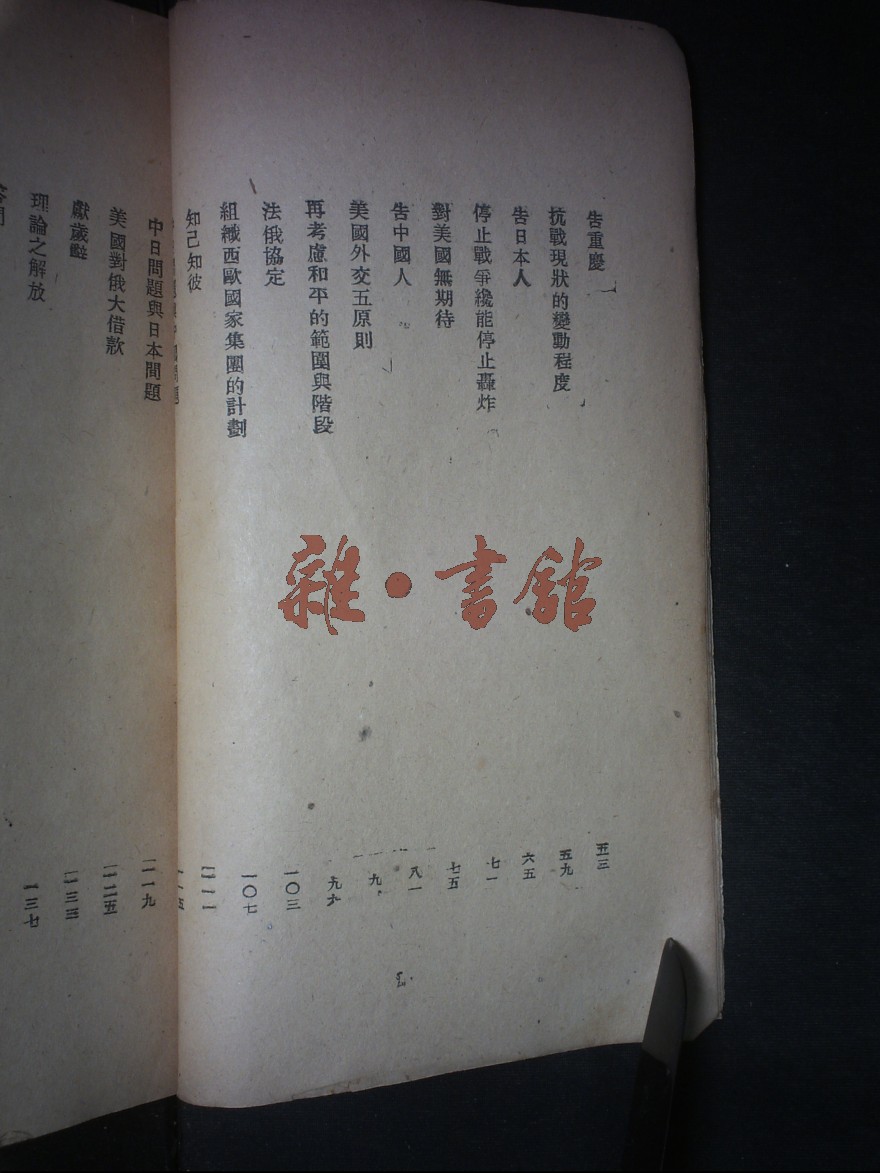 告重慶 五三
抗戰現狀的變動程度 五九
告日本人 六五
停止戰爭纔能停止轟炸 七一
對美國無期待 七五
告中國人 八一
美國外交五原則 九
再考慮和平的範圍與階段 九九
法俄協定 一〇三
組織西歐國家集團的計劃 一〇七
知己知彼 一一一
一一五
中日問題與日本問題 一一九
美國對俄大借款 一二五
獻歲辭 一三三
理論之解放 一三七
雜·書館